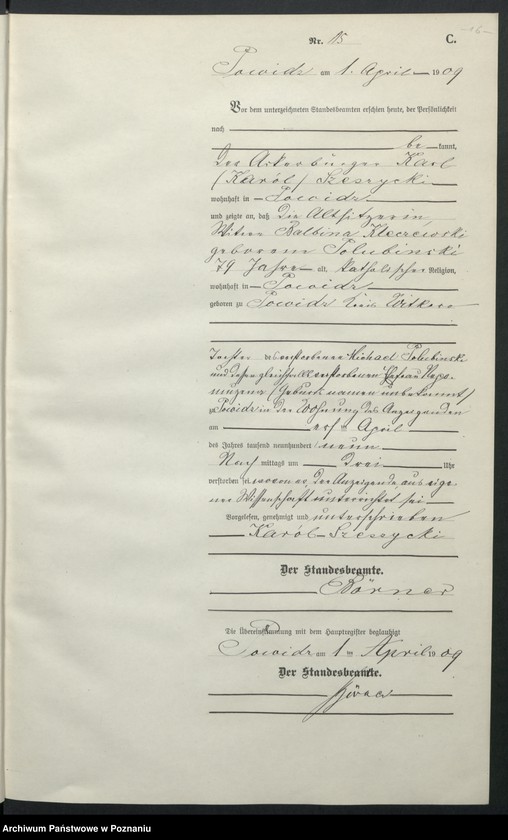 -16-
Nr. 115 C.
Powidz am 1. April 1909
Vor dem unterzeichneten Standesbeamten erschien heute, der Persönlichkeit
nach
be kannt,
der Ackerbürger Karl
(Karól) Szeszycki
wohnhaft in Powidz
und zeigte an, daß die Altsitzerin,
Witwe Balbina Kleczewski
geborene Polubinski
79 Jahre alt, katholischer Religion,
wohnhaft in Powidz
geboren zu Powidz Kreis Witkowo
Tochter des verstorbenen Michael Polubinski
und dessen gleichfalls verstorbenen Ehefrau Nepo-
muzena (Geburtsnamen unbekannt)
zu Powidz in der Wohnung des Anzeigenden
am ersten April
des Jahres tausend neunhundert neun
Nach mittags um drei Uhr
verstorben sei, wovon er, der Anzeigende, aus eige-
ner Wissenschaft unterrichtet sei
Vorgelesen, genehmigt und unterschrieben
Karól Szeszycki
Der Standesbeamte.
Börner
Die Übereinstimmung mit dem Hauptregister beglaubigt
Powidz am 1 ten April 1909
Der Standesbeamte.
Börner
Archiwum Państwowe w Poznaniu